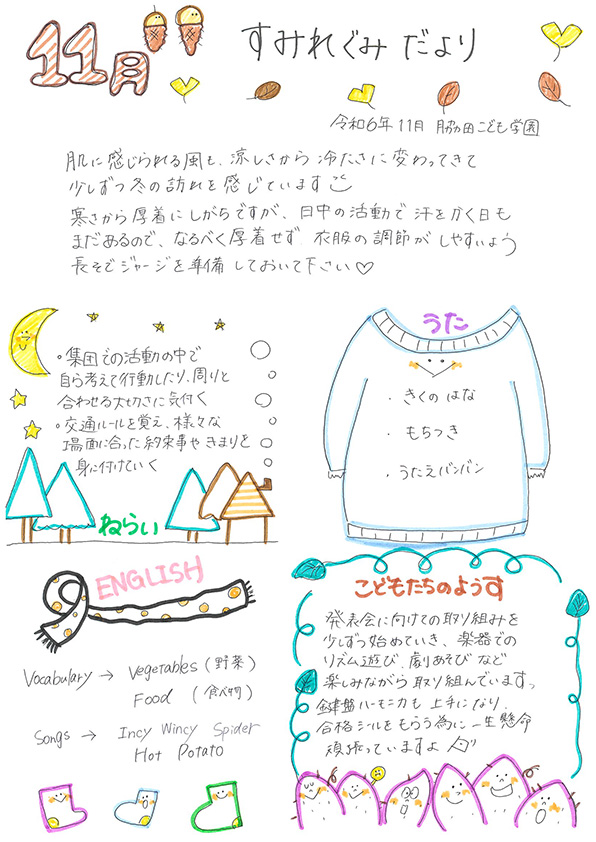 11月
すみれぐみ だより
令和6年 11月 脇の田こども学園
肌に感じられる風も、涼しさから 冷たさに変わってきて
少しずつ冬の訪れを感じています
寒さから厚着にしがちですが、日中の活動で汗をかく日も
まだあるので、なるべく厚着せず、衣服の調節がしやすいよう
長そでジャージを準備しておいて下さい♡
・集団での活動の中で
自ら考えて行動したり、周りと
合わせる大切さに気付く
・交通ルールを覚え、様々な
場面に合った約束事やきまりを
身に付けていく
ねらい
うた
・きくの はな
・もちつき
・うたえバンバン
ENGLISH
Vocabulary → Vegetables (野菜)
Food (食べ物)
Songs → Incy Wincy Spider
Hot Potato
こどもたちのようす
発表会に向けての取り組みを
少しずつ始めていき、楽器での
リズム遊び、劇あそびなど
楽しみながら取り組んでいます。
鍵盤ハーモニカも上手になり、
合格シールをもらう為に一生懸命
頑張っていますよ